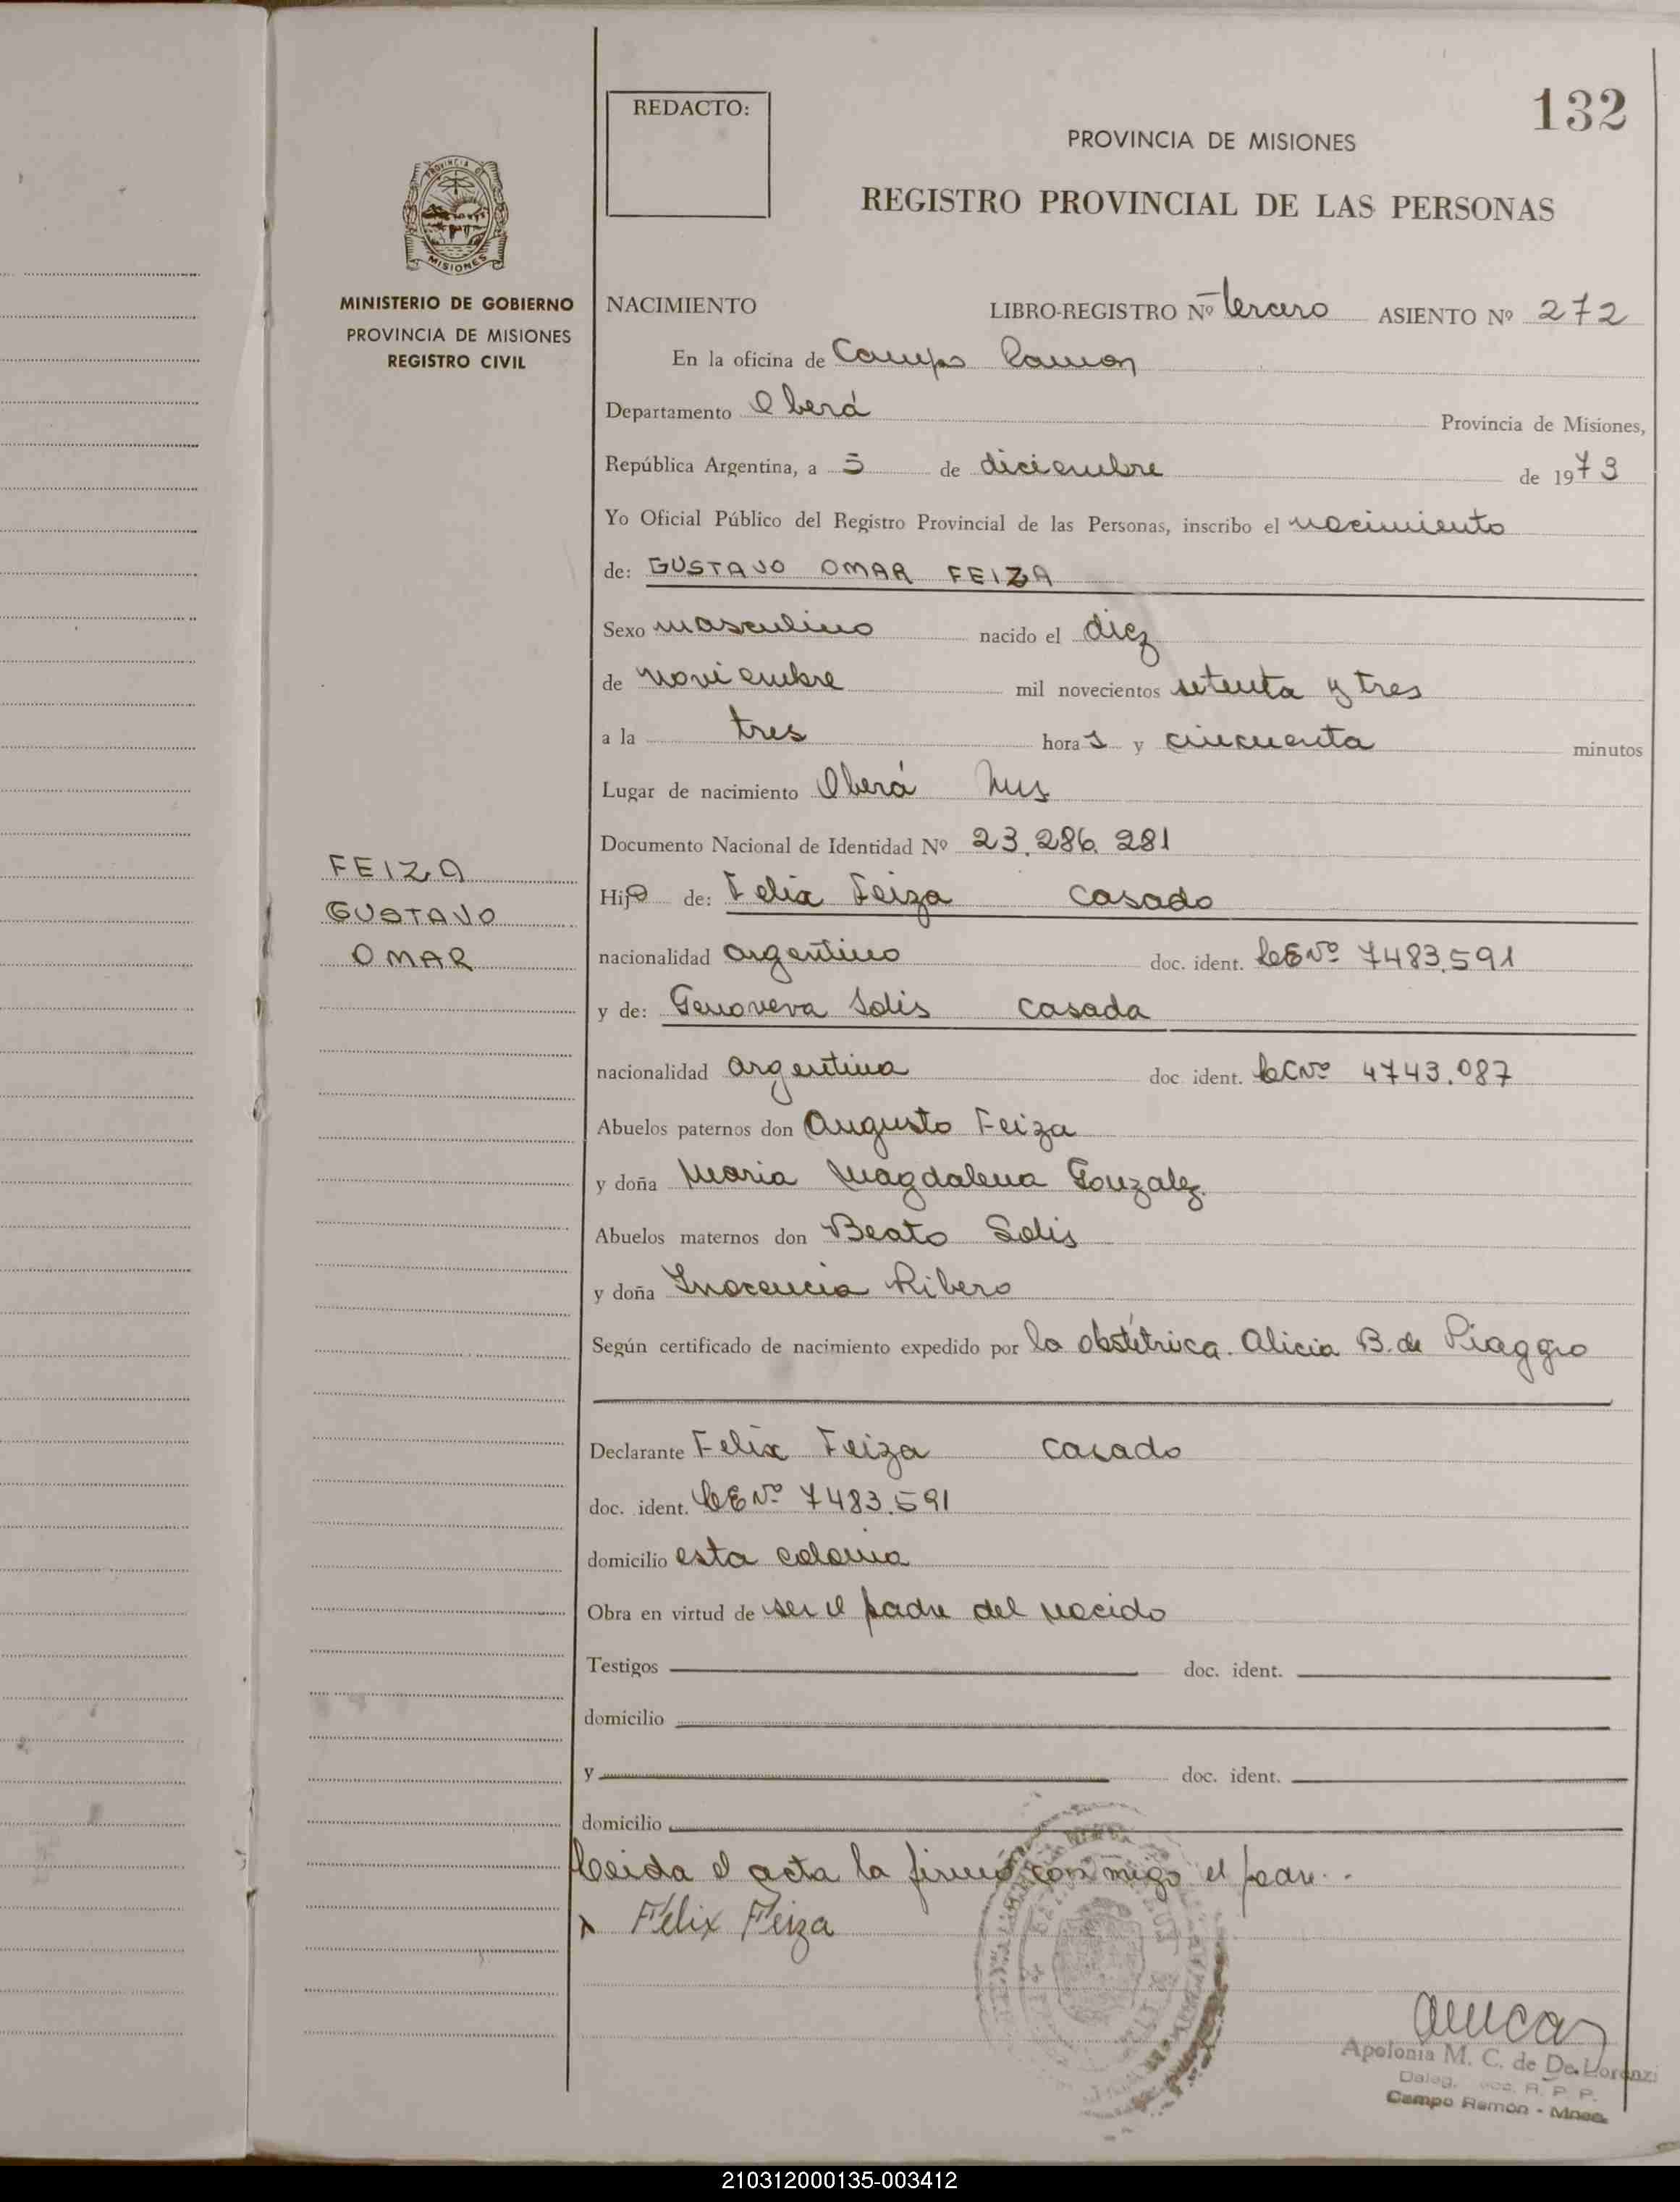 132
REDACTO:
PROVINCIA DE MISIONES
REGISTRO PROVINCIAL DE LAS PERSONAS
PROVINCIA DE
MISIONES
MINISTERIO DE GOBIERNO
PROVINCIA DE MISIONES
REGISTRO CIVIL
NACIMIENTO LIBRO-REGISTRO Nº tercero ASIENTO Nº 272
En la oficina de Campo Ramon
Departamento Oberá Provincia de Misiones,
República Argentina, a 5 de diciembre de 1973
Yo Oficial Público del Registro Provincial de las Personas, inscribo el nacimiento
de: GUSTAVO OMAR FEIZA
Sexo masculino nacido el diez
de noviembre mil novecientos setenta y tres
a la tres horas y cincuenta minutos
Lugar de nacimiento Oberá Mns
Documento Nacional de Identidad Nº 23.286.281
FEIZA
GUSTAVO
OMAR
Hijo de: Felix Feiza casado
nacionalidad argentino doc. ident. LE Nº 7483.591
y de: Genoveva Solis casada
nacionalidad argentina doc. ident. LC Nº 4743.087
Abuelos paternos don Augusto Feiza
y doña Maria Magdalena Gonzalez.
Abuelos maternos don Beato Solis
y doña Inocencia Ribero
Según certificado de nacimiento expedido por la obstétrica. Alicia B. de Piaggio
Declarante Felix Feiza casado
doc. ident. LE Nº 7483.591
domicilio esta colonia
Obra en virtud de ser el padre del nacido
Testigos doc. ident.
domicilio
y doc. ident.
domicilio
Leida el acta la firmó con migo el
x Félix Feiza
Apolonia M. C. de De Lorenzi
Deleg. R. P. P.
Campo Ramón - Mnes.
210312000135-003412